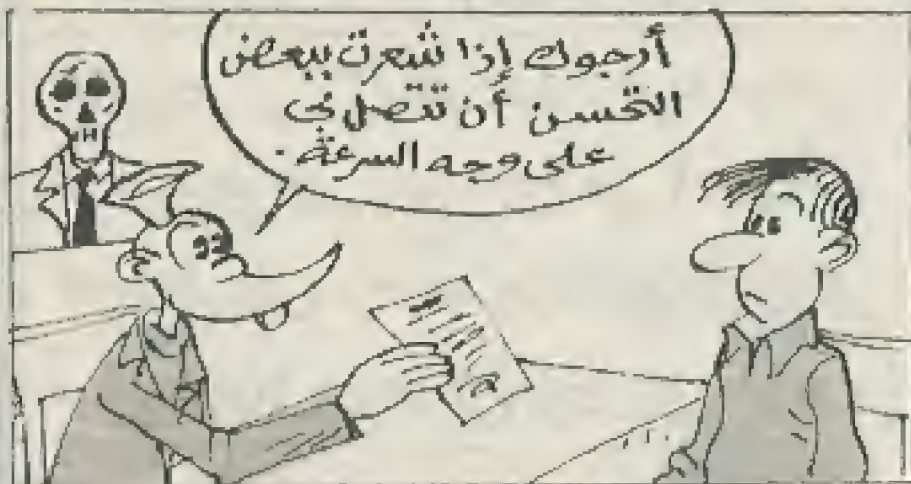 أرجوك إذا شعرت ببعض
التحسن أن تتصل بي
على وجه السرعة.